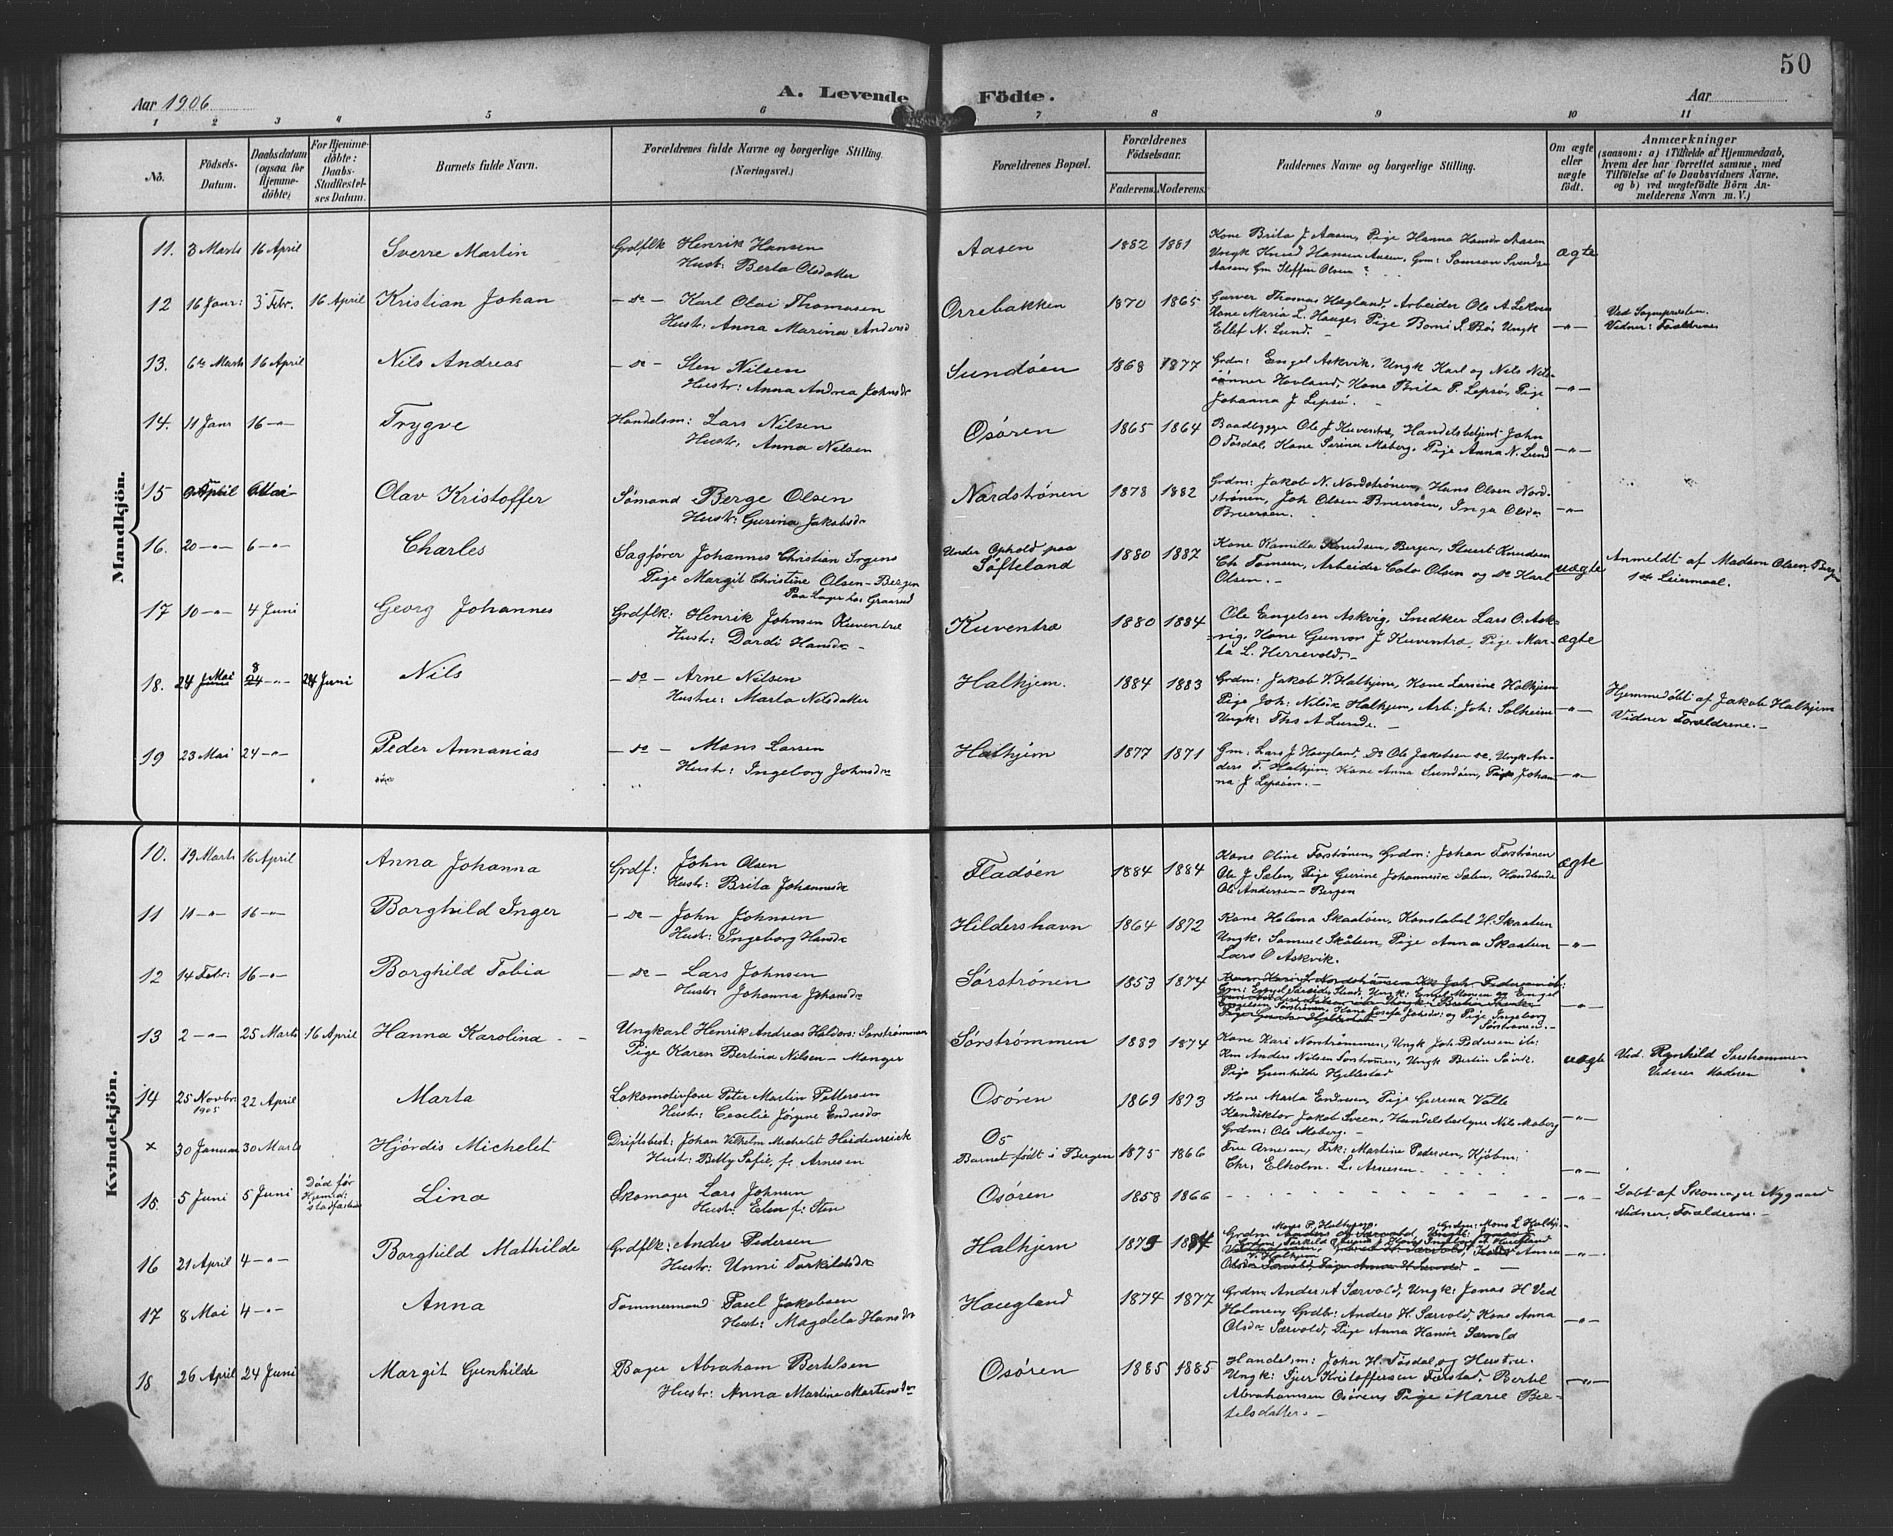 50
Aar 1906
A. Levende Födte.
Aar
1 2 3 4 5 6 7 8 9 10 11
No.
Födsels-Datum.
Daabsdatum (ogsaa for Hjemme-döbte)
For Hjemme-döbte: Daabs-Stadfæstel-ses Datum.
Barnets fulde Navn.
Forældrenes fulde Navne og borgerlige Stilling. (Næringsvei.)
Forældrenes Bopæl.
Forældrenes Födselsaar. Faderens. Moderens.
Faddernes Navne og borgerlige Stilling.
Om ægte eller uægte födt.
Anmærkninger
(saasom: a) i Tilfælde af Hjemmedaab,
hvem der har forrettet samme, med
Tilföielse af to Daabsvidners Navne.
og b) ved uægtefödte Börn An-
melderens Navn m. V.)
Mandkjön.
11. 3 Marts 16 April Sverre Martin Grdflk Henrik Hansen
Hust: Berta Olsdatter
Aasen 1882 1881 Kone Brita J Aasen, Pige Hanna Hansdr Aasen
Ungk Knud Hansen Aasen, Grm: Samson Svendsen
Aasen, Gm Steffen Olsen
ægte
12 16 Janr: 3 Febr. 16 April Kristian Johan -do- Karl Olai Thomasen
Hustr: Anna Marina Andersd
Orrebakken 1870 1865 Garver Thomas Hegland, Arbeider Ole A Leknes
Kone Maria L. Hauge, Pige Borni S. Bös Ungk
Ellef N. Lund.
-"- Ved Sognepresten.
Vidner: Forældrene
13. 6te Marts 16 April Nils Andreas -do- Sten Nilsen
Hustr: Anna Andrea Johnsdr
Sundöen 1868 1877 Grdm: Engel Askvik, Ungk Karl og Nils Nils-
sönner Hovland, Kone Brita P. Lepsö, Pige
Johanna J Lepsö.
-"-
14. 11 Janr 16 -"- Trygve Handelsm: Lars Nilsen
Hustr: Anna Nilsen
Osören 1865 1864 Baadbygger Ole J Kuventræ, Handelsbetjent John
O Tösdal, Kone Serina Moberg, Pige Anna N. Lund
-"-
15 9 April 6 Mai Olav Kristoffer Sömand Berge Olsen
Hustr: Gurina Jakobsdr
Nordströnen 1878 1882 Grdm: Jakob N. Nordströnen, Hans Olsen Nord-
strönen, Joh Olsen Bruerøen, Inga Olsdr
Bruerøen.
-"-
16. 20 -"- 6 -"- Charles Sagförer Johannes Christian Irgens
Pige Margit Christine Olsen - Bergen
Paa Lager hos Graarud
Under Ophold paa
Söfteland
1880 1887 Kone Kamilla Knudsen, Bergen, Stuert Knudsen
Chr Tomsen, Arbeider Colo Olsen og do Karl
Olsen.-
uægte Anmeldt af Madam Olsen, Berg
1ste Leiermaal.
17 10 -"- 4 Juni Georg Johannes Grdflk: Henrik Johnsen Kuventræ
Hustr: Dordi Hansdr
Kuventræ 1880 1884 Ole Engelsen Askvig, Snedker Lars O. Ask-
vig, Kone Gunvor J Kuventræ, Pige Mar-
ta L. Herrevold.-
ægte
18. 24 Mai 8 24 -"- 24 Juni Nils -do- Arne Nilsen
Hustru: Marta Nilsdatter
Halhjem. 1884 1883 Grdm: Jakob V. Halhjem, Kone Larsine Halhjem
Pige Joh: Nilsdr Halhjem, Arb: Joh: Solheim
Ungk: Ths A Lunde.-
-"- Hjemmedöbt af Jakob Halhjem
Vidner Forældrene.-
19 23 Mai 24 -"- Peder Annanias -do- Mons Larsen
Hustr: Ingeborg Johnsdr
Halhjem 1877 1871 Gm: Lars J Haugland, Do Ole Jakobsen do, Ungk An-
ders T. Halhjem, Kone Anna Sundöen, Pige Johan-
na J Lepsöen.-
-"-
Kvindekjön.
10. 19 Marts 16 April Anna Johanna Grdf: John Olsen
Hustr: Brita Johannesdr
Fladöen 1884 1884 Kone Oline Forströnen, Grdm: Johan Forströnen
Ole J Sælen, Pige Gurine Johannesdr Sælen, Handlende
Ole Andersen - Bergen
ægte
11 11 -"- 16 -"- Borghild Inger -do- John Johnsen
Hustr: Ingeborg Hansdr
Hildershavn 1864 1872 Kone Helena Skaatöen, Konstabel H. Skaatöen
Ungk: Samuel Skåtöen, Pige Anna Skaatöen
Lars O Askvik.
-"-
12 14 Febr: 16 -"- Borghild Tobia -do- Lars Johnsen
Hustr: Johanna Johansdr
Sørströnen 1853 1874
-"-
13 2 -"- 25 Marts 16 April Hanna Karolina Ungkarl Henrik Andreas Haldors: Sørströmmen
Pige Karen Bertina Nilsen - Manger
Sørströmmen 1889 1874 Kone Kari Nordströmmen, Ungk Joh Pedersen ib:
Km Anders Nilsen Sørströmmen, Ungk Bertin Særv.
Pige Gunhilde Hjellestad
uægte Ved. Rgnhild Sørströmmen
Vidner Moderen
14 25 Novbr 1905 22 April Marta Lokomotivförer Peter Martin Pettersen
Hustr: Cecilie Jörgine Endresdr
Osören 1869 1873 Kone Marta Endresen, Pige Gurina Valle
Konduktør Jakob Sveen, Handelsbestyrer Nils Moberg
Grdm: Ole Moberg.-
-"-
× 30 Januar 30 Marts Hjördis Michelet Driftsbest: Johan Vilhelm Michelet Heidenreich
Hustr: Betty Sofie, f. Arnesen
Os
Barnet födt i Bergen
1875 1866 Fru Arnesen, Frk: Martine Pedersen, Kjöbm:
Chr. Elholm. L. Arnesen.
-"-
15. 5 Juni 5 Juni Död för
Hjemmed:
stadfæstedes
Lina Skomager Lars Johnsen
Hustr: Elen f. Sten
Osören 1858 1866
-"- Döbt af Skomager Nygaard
Vidner, Forældrene.-
16 21 April 4 -"- Borghild Mathilde Grdflk: Anders Pedersen
Hustr: Unni Torkildsdr
Halhjem 1875 1884
-"-
17 8 Mai 4 -"- Anna Tømmermand Paul Jakobsen
Hustr: Magdela Hansdr
Haugland 1874 1877 Grdm Anders A Særvold, Ungk: Jonas H Ved
Holmen, Grdbr: Anders H. Særvold, Kone Anna
Olsdr Særvold, Pige Anna Hansdr Særvold
-"-
18 26 April 24 Juni Margit Gunhilde Bager Abraham Bertelsen
Hustr: Anna Martine Martensdr
Osören 1885 1885 Handelsm: John H. Tösdal og Hustru.
Ungk: Sjur Kristoffersen Tuestad Bertel
Abrahamsen Osören, Pige Marie Ber-
telsdatter.-
-"-